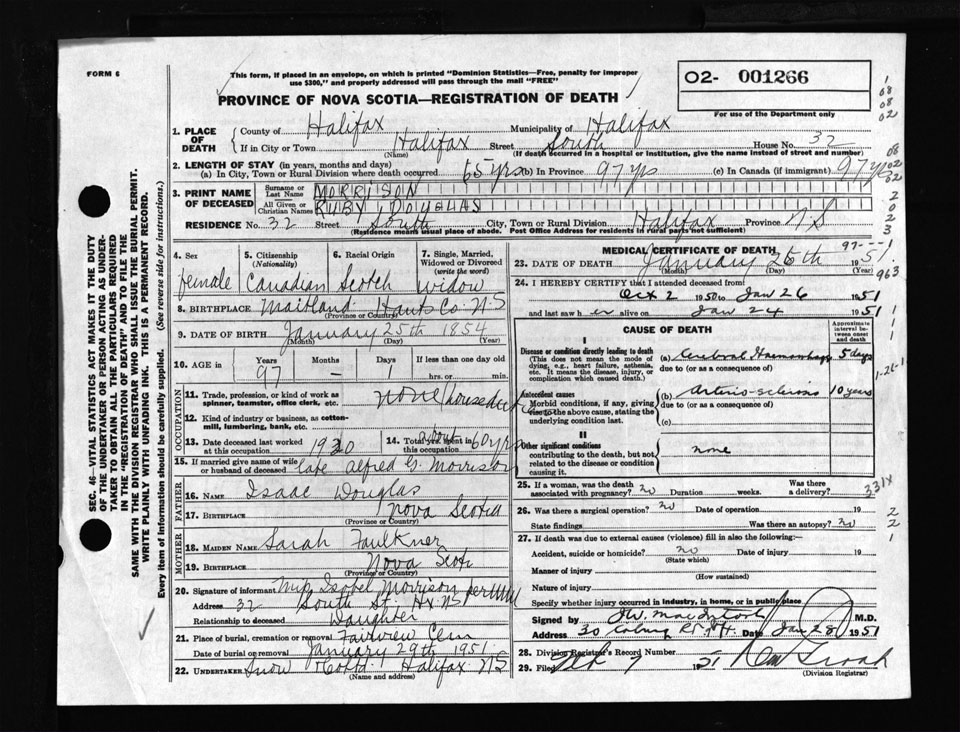 FORM 6
This form, if placed in an envelope, on which is printed "Dominion Statistics—Free, penalty for improper
use $300," and properly addressed will pass through the mail "FREE"
O2- 001266
For use of the Department only
PROVINCE OF NOVA SCOTIA—REGISTRATION OF DEATH
1. PLACE OF DEATH
County of Halifax Municipality of Halifax
If in City or Town Halifax Street South House No. 32
(Name) (If death occurred in a hospital or institution, give the name instead of street and number)
2. LENGTH OF STAY (in years, months and days)
(a) In City, Town or Rural Division where death occurred 65 yrs (b) In Province 97 yrs (c) In Canada (if immigrant) 97 yrs
3. PRINT NAME OF DECEASED
Surname or Last Name MORRISON
All Given or Christian Names RUBY DOUGLAS
RESIDENCE No. 32 Street South City, Town or Rural Division Halifax Province N S
(Residence means usual place of abode. Post Office Address for residents in rural parts not sufficient)
4. Sex 5. Citizenship (Nationality) 6. Racial Origin 7. Single, Married, Widowed or Divorced (write the word)
female Canadian Scotch widow
8. BIRTHPLACE Maitland Hants Co N-S
(Province or Country)
9. DATE OF BIRTH January 25th 1854
(Month) (Day) (Year)
10. AGE in Years Months Days If less than one day old
97 — 1 hrs. or min.
OCCUPATION
11. Trade, profession, or kind of work as spinner, teamster, office clerk, etc. none
12. Kind of industry or business, as cotton-mill, lumbering, bank, etc.
13. Date deceased last worked at this occupation 1930
14. Total yrs. spent in this occupation about 60 yrs
15. If married give name of wife or husband of deceased late Alfred G. Morrison
FATHER
16. NAME Isaac Douglas
17. BIRTHPLACE Nova Scotia
(Province or Country)
MOTHER
18. MAIDEN NAME Sarah Faulkner
19. BIRTHPLACE Nova Scot
(Province or Country)
20. Signature of informant Isobel Morrison per
Address 32 South St Hx NS
Relationship to deceased Daughter
21. Place of burial, cremation or removal Fairview Cem
Date of burial or removal January 29th 1951
22. UNDERTAKER Snow & Co Ltd. Halifax NS
(Name and address)
MEDICAL CERTIFICATE OF DEATH
23. DATE OF DEATH January 26th 1951
(Month) (Day) (Year)
24. I HEREBY CERTIFY that I attended deceased from
Oct 2 1950 to Jan 26 1951
and last saw her alive on Jan 24 1951
CAUSE OF DEATH
Approximate interval between onset and death
I
Disease or condition directly leading to death
(This does not mean the mode of dying, e.g., heart failure, asthenia, etc. It means the disease, injury, or complication which caused death.)
(a) Cerebral Haemorrhage 5 days
due to (or as a consequence of)
Antecedent causes
Morbid conditions, if any, giving rise to the above cause, stating the underlying condition last.
(b) Arterio-sclerosis 10 years
due to (or as a consequence of)
(c)
II
Other significant conditions
contributing to the death, but not related to the disease or condition causing it.
none
25. If a woman, was the death associated with pregnancy? no Duration weeks. Was there a delivery?
331X
26. Was there a surgical operation? no Date of operation 19
State findings Was there an autopsy? no
27. If death was due to external causes (violence) fill in also the following:—
Accident, suicide or homicide? no Date of injury 19
(State which)
Manner of injury
(How sustained)
Nature of injury
Specify whether injury occurred in industry, in home, or in public place
Signed by MacIntosh M.D.
Address 30 Coburg Date Jan 28 1951
28. Division Registrar's Record Number
29. Filed 7 1951
(Division Registrar)
SEC. 46—VITAL STATISTICS ACT MAKES IT THE DUTY
OF THE UNDERTAKER OR PERSON ACTING AS UNDER-
TAKER TO OBTAIN ALL THE PARTICULARS REQUIRED
IN THE "REGISTRATION OF DEATH" AND TO FILE THE
SAME WITH THE DIVISION REGISTRAR WHO SHALL ISSUE THE BURIAL PERMIT.
WRITE PLAINLY WITH UNFADING INK. THIS IS A PERMANENT RECORD.
Every item of information should be carefully supplied. (See reverse side for instructions.)